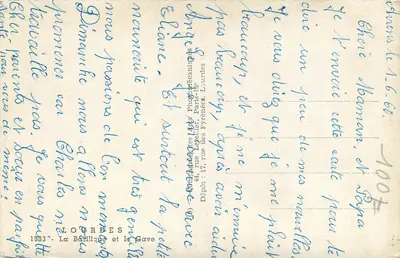 Auvers le 1.6.60.
Chère Maman et Papa
Je t'envoie cette carte pour te
dire un peu de mes nouvelles.
Je vous dirais que je me plait
beaucoup, et je ne m'ennuie
pas beaucoup, après avoir aidé
Angele
Eliane. Et surtout la petite
mauricette qui est très gentille
nous passions de bon moments
Dimanche nous allons nous
promener car Charles ne
travaille pas. Je vous quitte
Cher parents et soeur en parfaite
santé pour vous de même.
100F
LOURDES
1933 - La Basilique et le Gave
Dépôt : 17, rue des Pyrénées, Lourdes